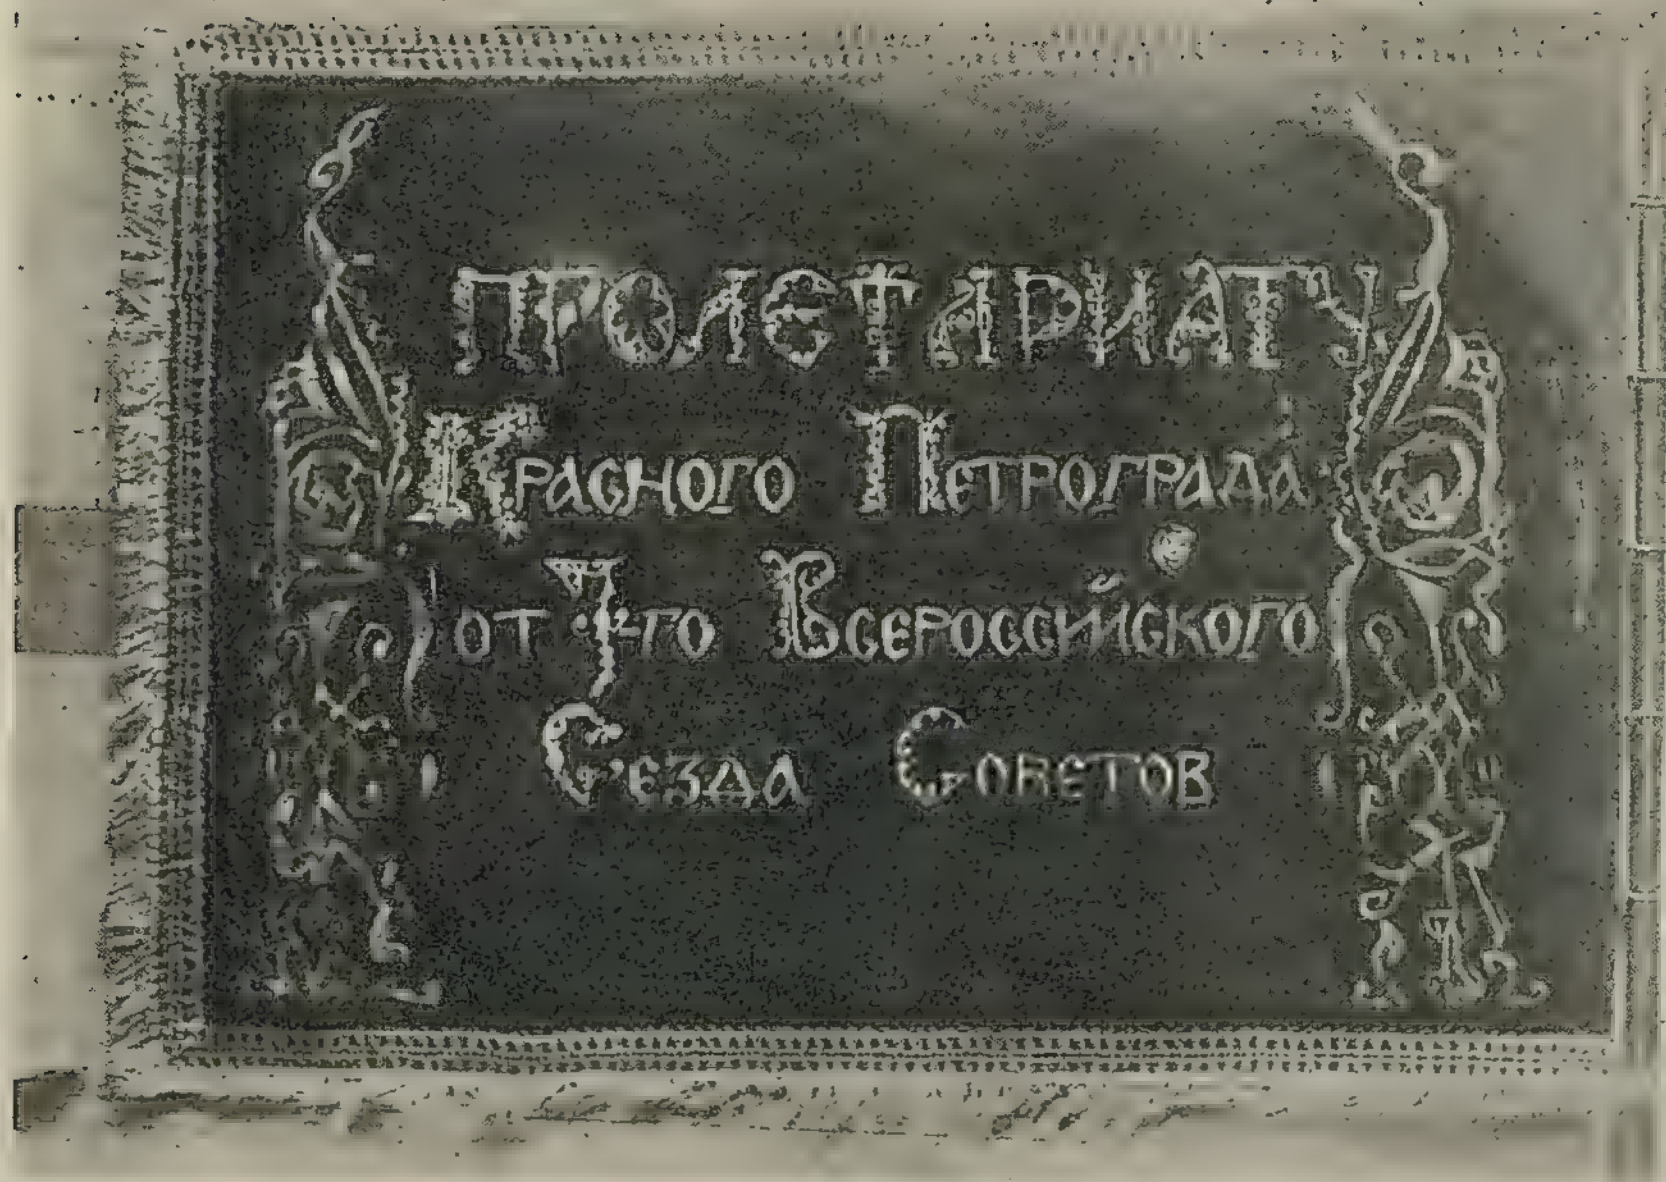 ПРОЛЕТАРИАТУ
КРАСНОГО ПЕТРОГРАДА
ОТ 7-ГО ВСЕРОССИЙСКОГО
С'ЕЗДА СОВЕТОВ